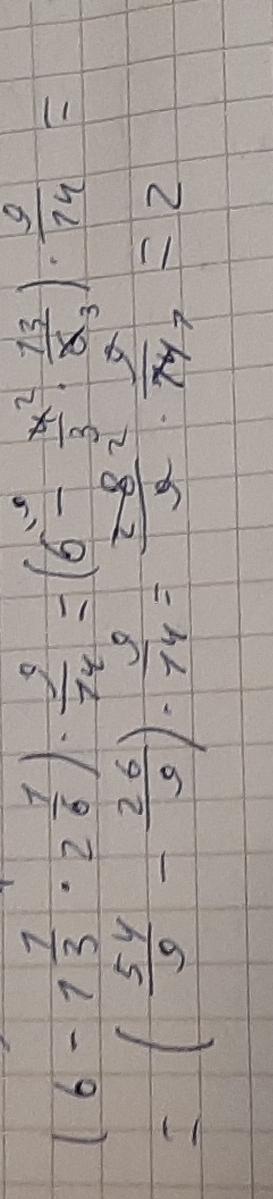 (6 - 1 1/3 · 2 1/6) · 9/14 = (6 - 4/3 · 13/6) · 9/14 =
= (54/9 - 26/9) · 9/14 = 28/9 · 9/14 = 2